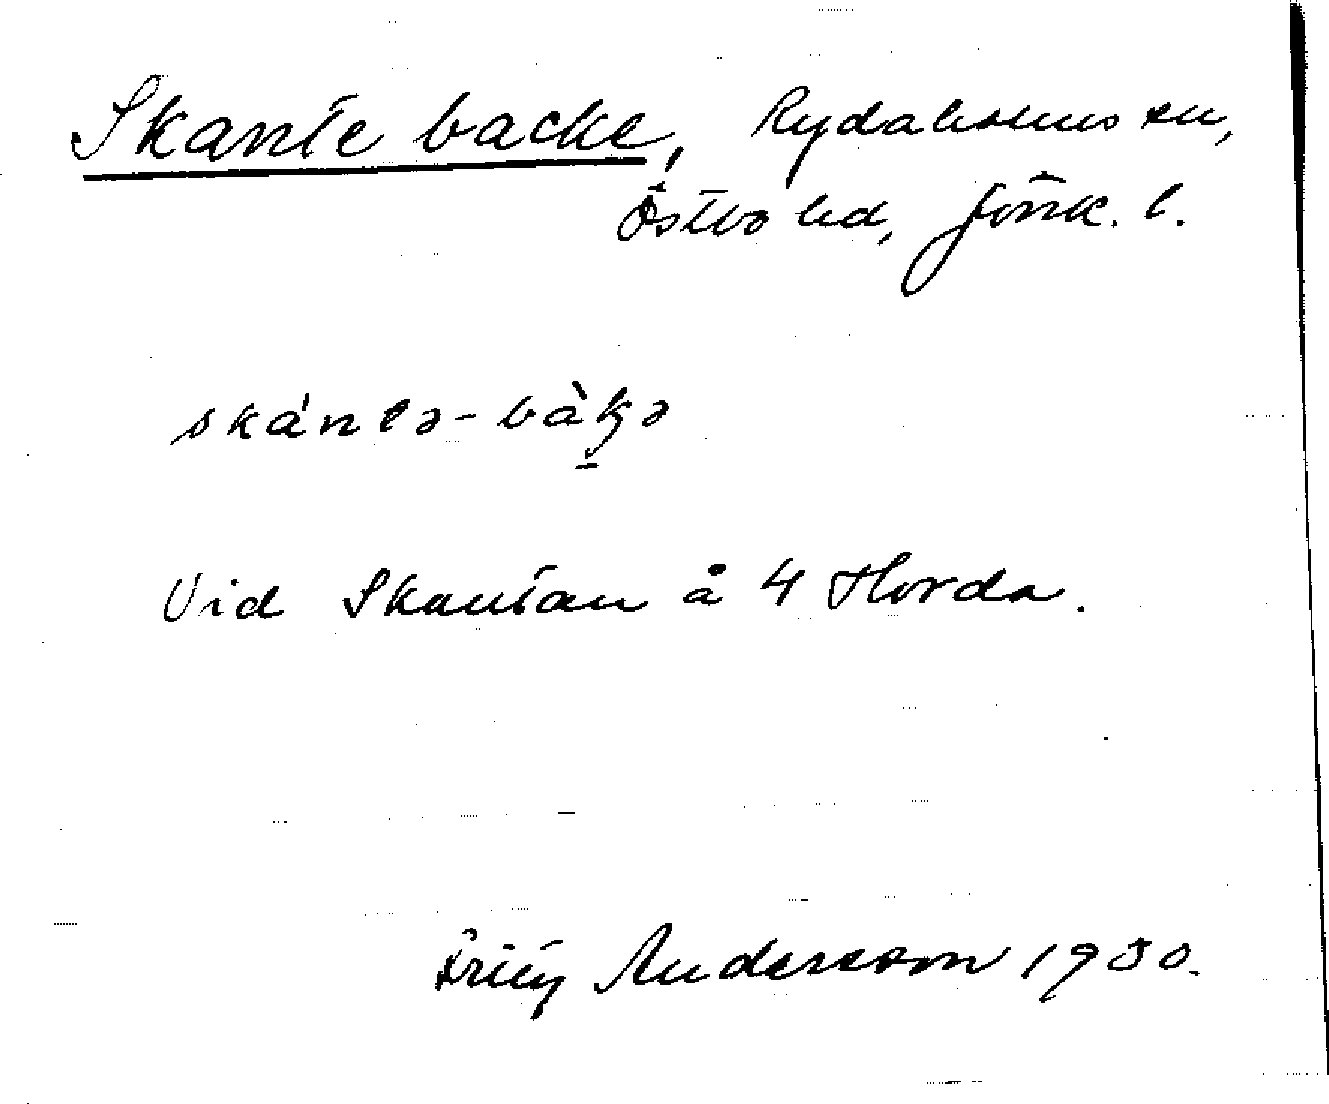 Skante backe, Rydaholms sn,
Östbo hd, Jönk. l.
skántə-bàkə
Vid Skantan å 4 Horda.
Anderson 1930.